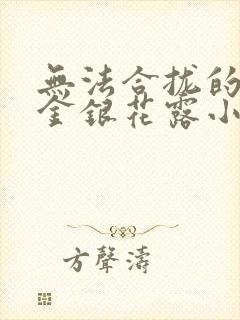 無法合拢的
金銀花露小
方聲濤